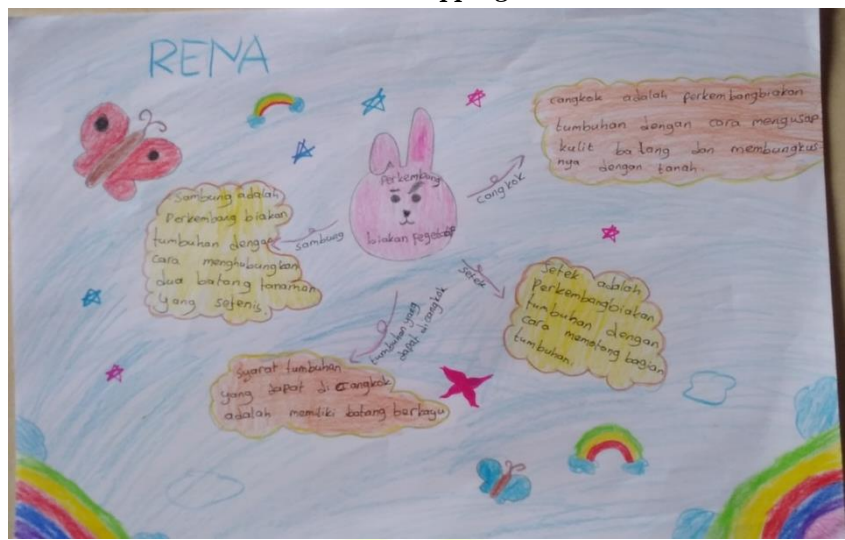 RENA
Perkembang
biakan
cangkok
cangkok adalah perkembangbiakan
tumbuhan dengan cara mengusap
kulit batang dan membungkus
nya dengan tanah.
sambung
Sambung adalah
Perkembang biakan
tumbuhan dengan
cara menghubungkan
dua batang tanaman
yang sejenis.
setek
Setek adalah
Perkembangbiakan
tumbuhan dengan
cara memotong bagian
tumbuhan.
tumbuhan yang
dapat dicangkok
syarat tumbuhan
yang dapat di cangkok
adalah memiliki batang berkayu